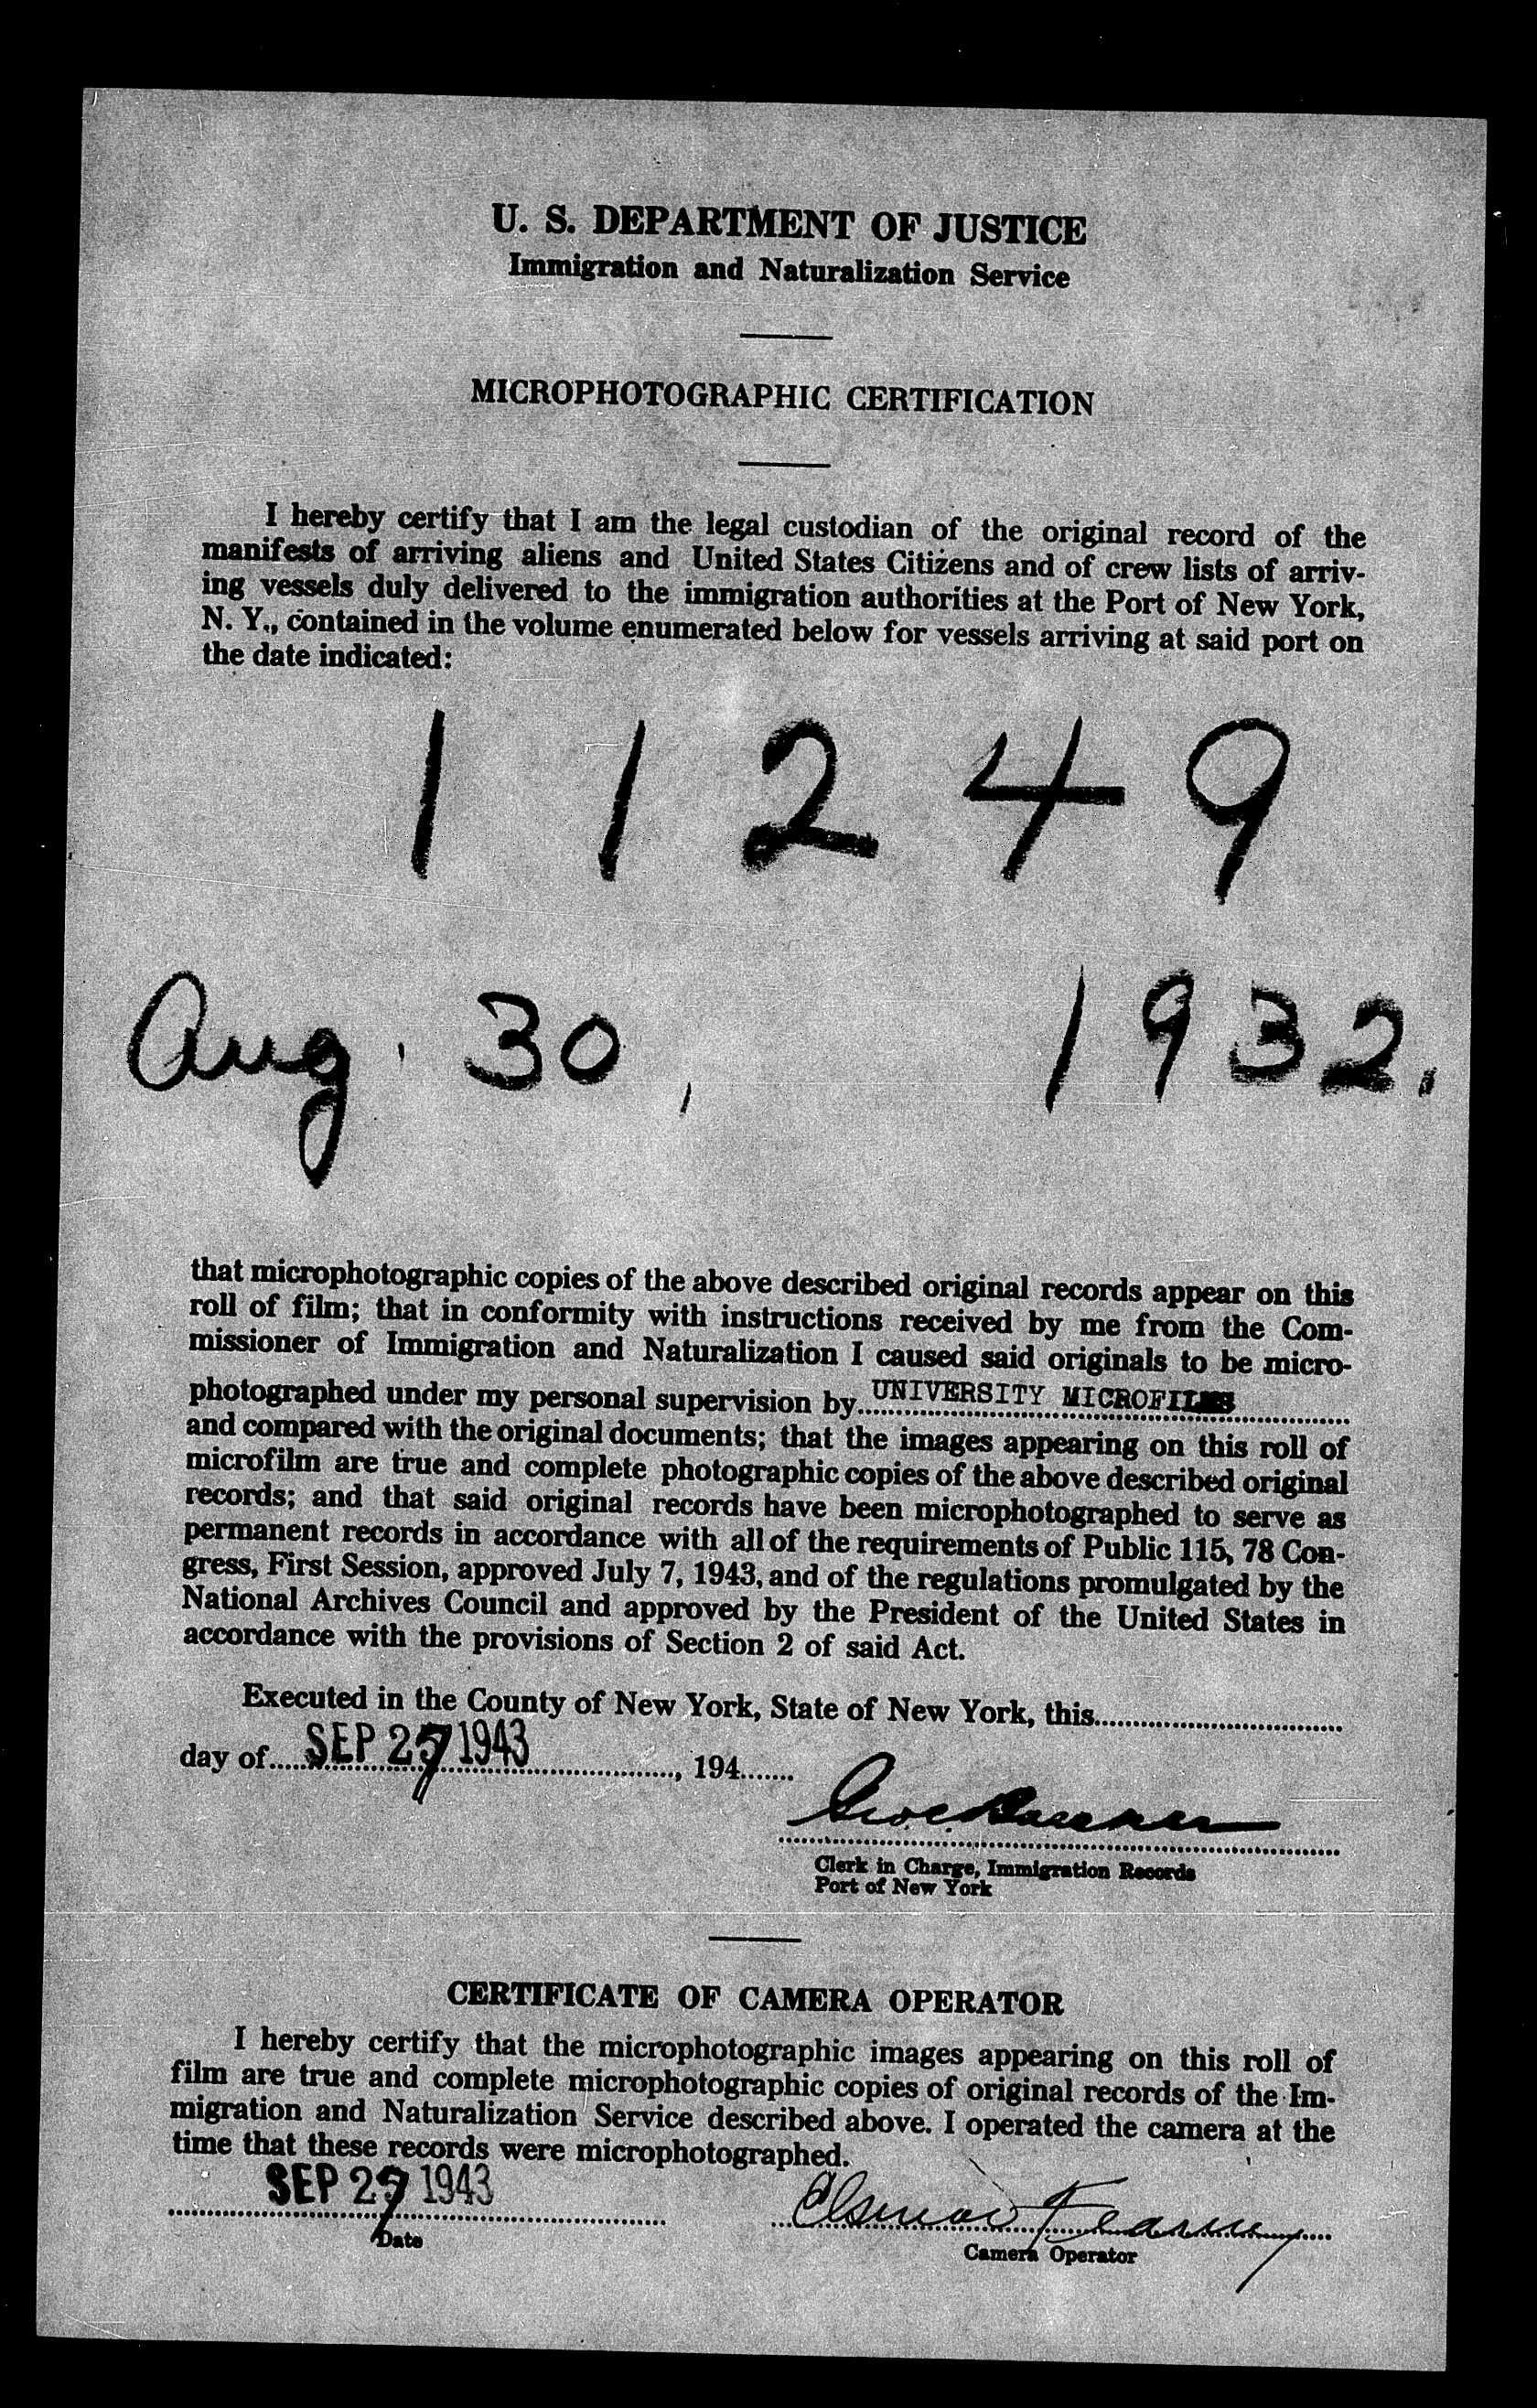 U. S. DEPARTMENT OF JUSTICE
Immigration and Naturalization Service
MICROPHOTOGRAPHIC CERTIFICATION
I hereby certify that I am the legal custodian of the original record of the
manifests of arriving aliens and United States Citizens and of crew lists of arriv-
ing vessels duly delivered to the immigration authorities at the Port of New York,
N. Y., contained in the volume enumerated below for vessels arriving at said port on
the date indicated:
11249
Aug. 30, 1932.
that microphotographic copies of the above described original records appear on this
roll of film; that in conformity with instructions received by me from the Com-
missioner of Immigration and Naturalization I caused said originals to be micro-
photographed under my personal supervision by UNIVERSITY MICROFILMS
and compared with the original documents; that the images appearing on this roll of
microfilm are true and complete photographic copies of the above described original
records; and that said original records have been microphotographed to serve as
permanent records in accordance with all of the requirements of Public 115, 78 Con-
gress, First Session, approved July 7, 1943, and of the regulations promulgated by the
National Archives Council and approved by the President of the United States in
accordance with the provisions of Section 2 of said Act.
Executed in the County of New York, State of New York, this
day of SEP 27 1943, 194
Clerk in Charge, Immigration Records
Port of New York
CERTIFICATE OF CAMERA OPERATOR
I hereby certify that the microphotographic images appearing on this roll of
film are true and complete microphotographic copies of original records of the Im-
migration and Naturalization Service described above. I operated the camera at the
time that these records were microphotographed.
SEP 27 1943
Date
Camera Operator